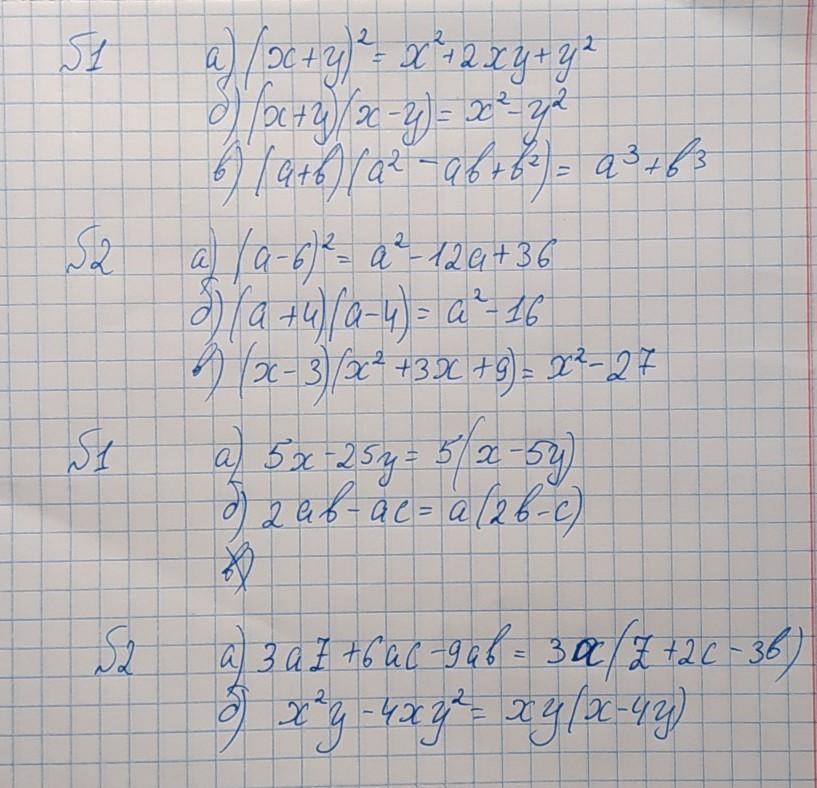 Б1 а) (x+y)² = x²+2xy+y²
б) (x+y)(x-y) = x²-y²
в) (a+b)(a²-ab+b²) = a³+b³
Б2 а) (a-6)² = a²-12a+36
б) (a+4)(a-4) = a²-16
в) (x-3)(x²+3x+9) = x²-27
Б1 а) 5x-25y = 5(x-5y)
б) 2ab-ac = a(2b-c)
в)
Б2 а) 3az+6ac-9ab = 3a(z+2c-3b)
б) x²y-4xy² = xy(x-4y)